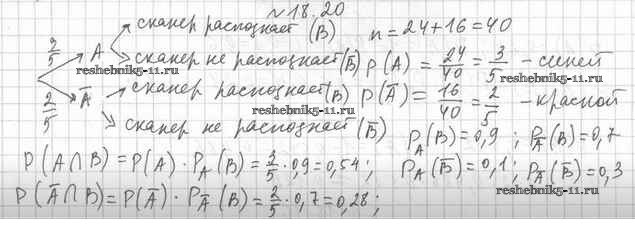 №18.20
сканер распознает (B)
n = 24+16 = 40
3/5 A
сканер не распознает (B̅)
P(A) = 24/40 = 3/5 - синей
reshebnik5-11.ru
сканер распознает (B)
P(A̅) = 16/40 = 2/5 - красной
2/5 A̅
reshebnik5-11.ru
сканер не распознает (B̅)
P_A(B) = 0,9 ; P_A̅(B) = 0,7
P(A∩B) = P(A) · P_A(B) = 3/5 · 0,9 = 0,54 ;
P_A(B̅) = 0,1 ; P_A̅(B̅) = 0,3
reshebnik5-11.ru
P(A̅∩B) = P(A̅) · P_A̅(B) = 2/5 · 0,7 = 0,28 ;
reshebnik5-11.ru